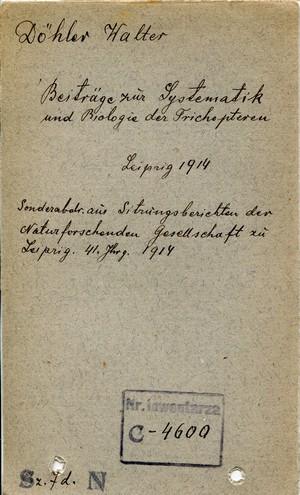 Döhler Walter
Beiträge zur Systematik
und Biologie der Trichopteren
Leipzig 1914
Sonderabdr. aus Sitzungsberichten der
Naturforschenden Gesellschaft zu
Leipzig. 41. Jhrg. 1914
Nr. inwentarza
C-4600
Sz. 7 d. N